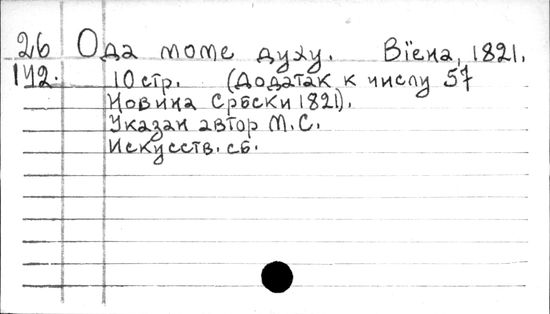 26 Ода моме духу. Вїена, 1821.
142. 10 стр. (Додатак к числу 57
Новина Србски 1821).
Указан автор М.С.
Искусств. сб.